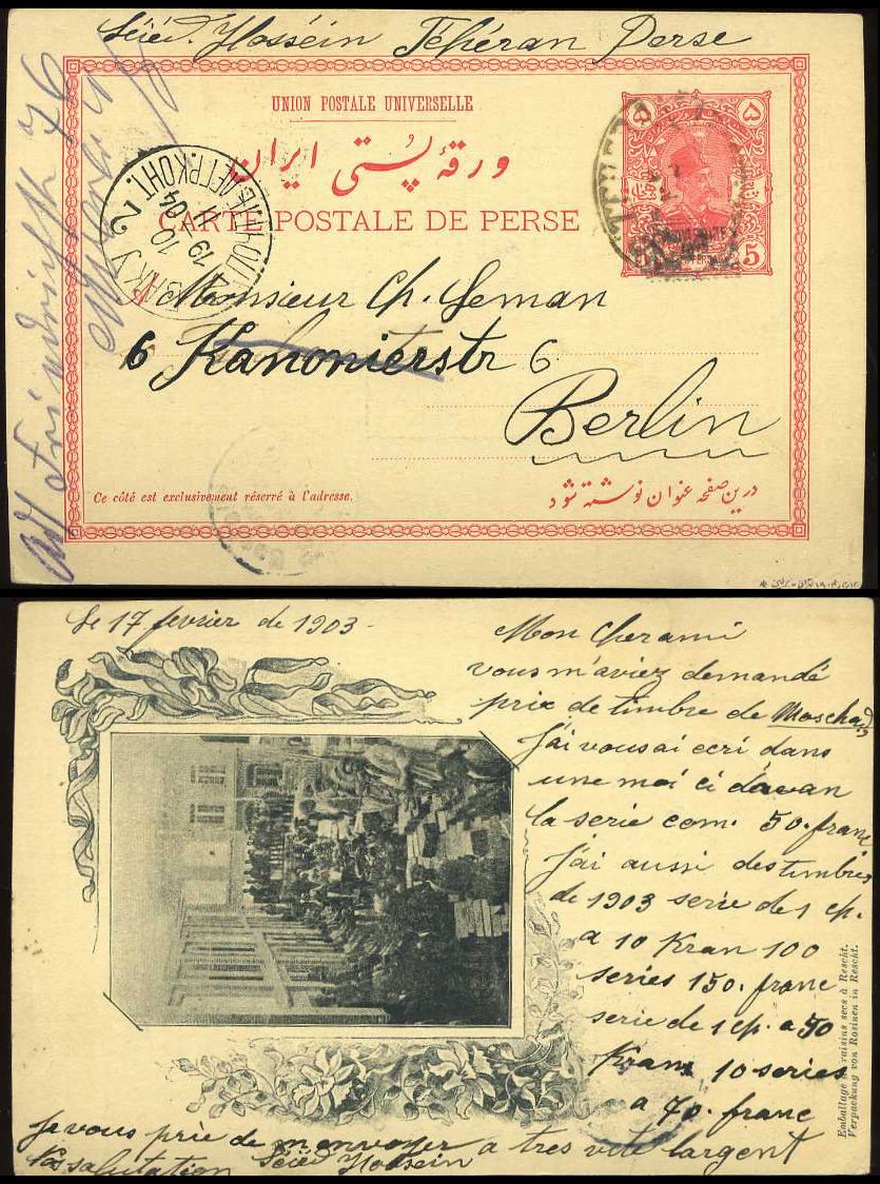 Séiéd. Hosséin Téhéran Perse
UNION POSTALE UNIVERSELLE
ورقهٔ پُستی ایران
CARTE POSTALE DE PERSE
۵ ۵
5
БАКУ 2
19 10 11 04
Monsieur Ch. Leman
6 Kanonierstr 6
Berlin
W Friedrichstr 76
Ce côté est exclusivement réservé à l'adresse.
درین صفحه عنوان نوشته شود
Le 17 fevrier de 1903-
Mon Cher ami
vous m'aviez demandé
prix de timbre de Moschad
J'ai vous ai ecri dans
une moi ci davan
la serie com. 50. franc
J'ai aussi des timbres
de 1903 serie de 1 ch.
a 10 Kran 100
series 150. franc
serie de 1 ch. a 50
Kran 10 series
a 70. franc
Je vous prie de m'envoyer a tres vite largent
Vos salutation Séiéd Hossein
Emballage de raisins secs à Rescht.
Verpackung von Rosinen in Rescht.